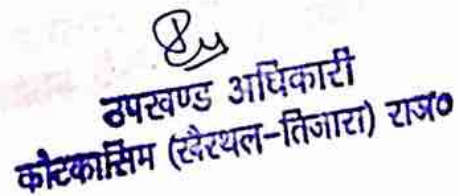 उपखण्ड अधिकारी
कोटकासिम (खैरथल-तिजारा) राज०